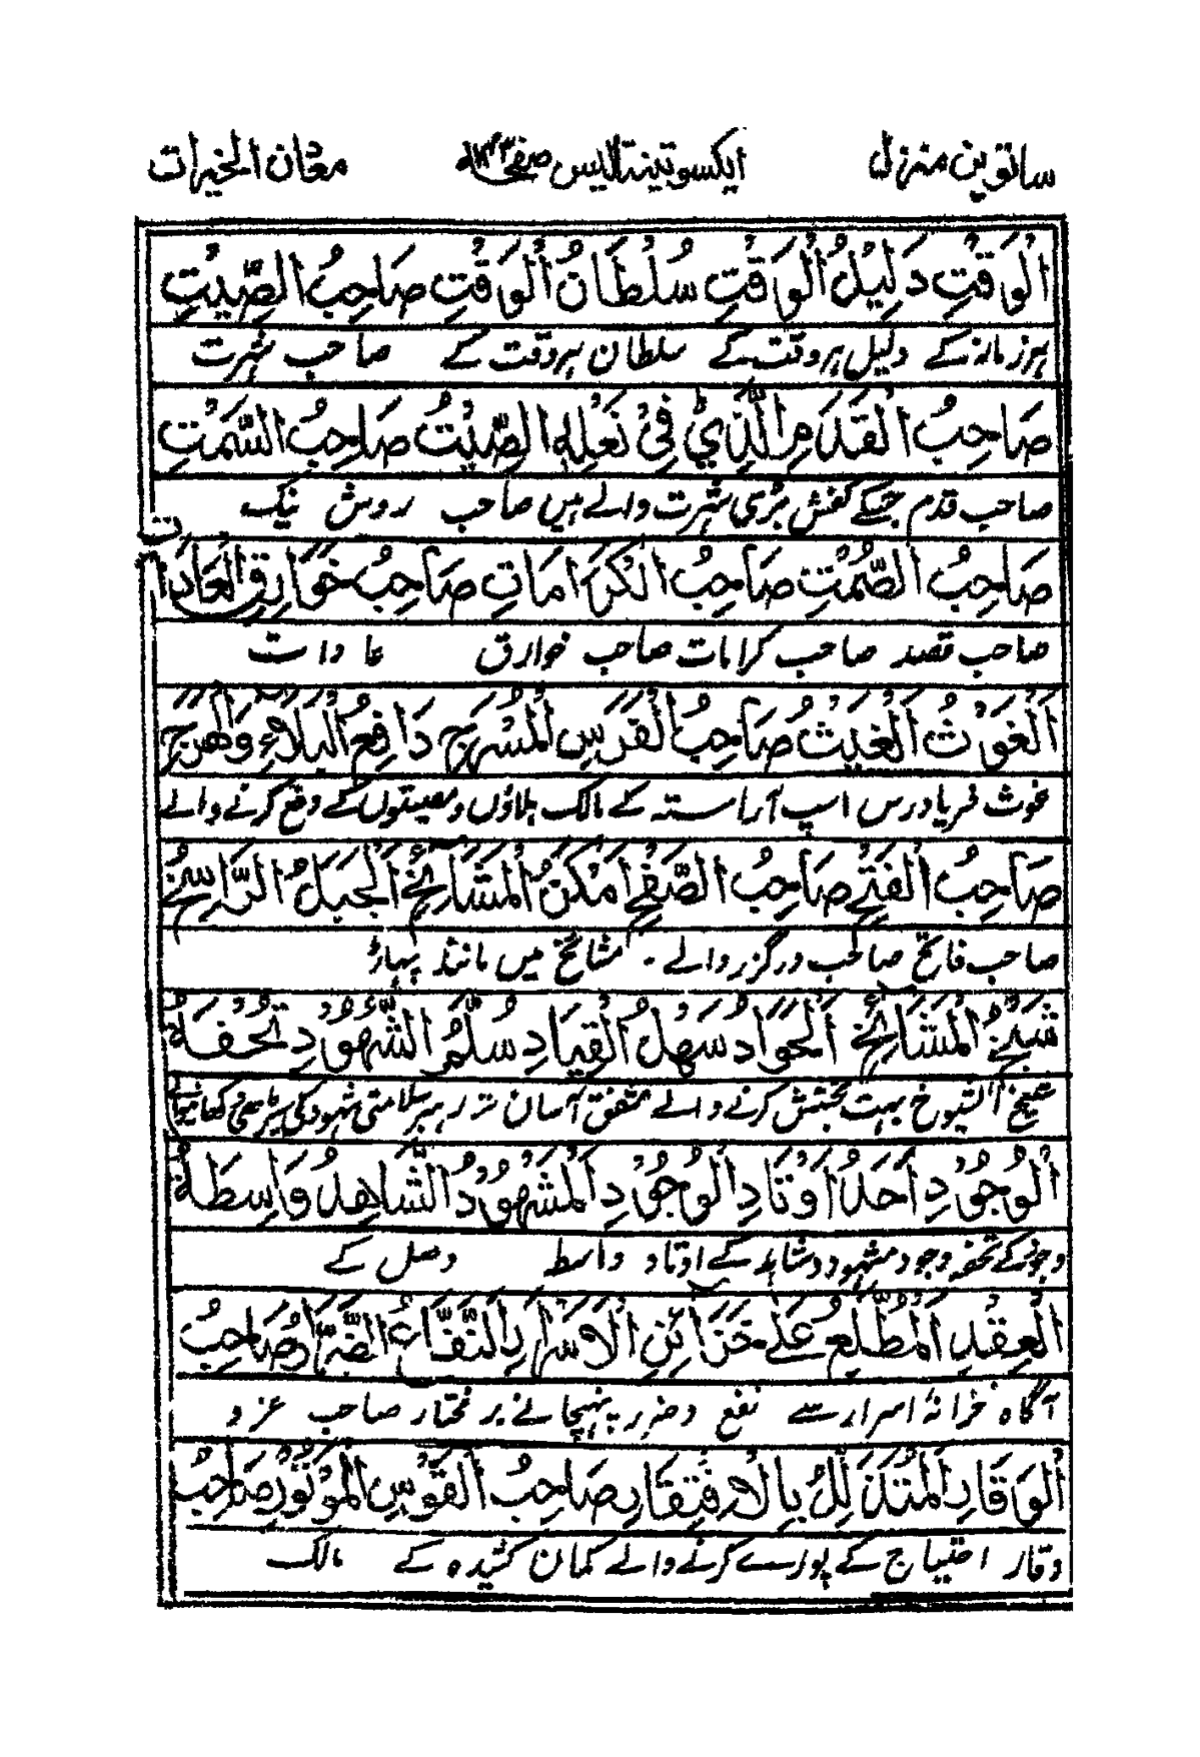 ساتوین منزل ایکسو تینتالیس صفحہ ۱۴۳ معدن الخیرات
الْوَقْتِ دَلِيْلُ الْوَقْتِ سُلْطَانُ الْوَقْتِ صَاحِبُ الصِّيْتِ
ہرزمانہ کے دلیل ہروقت کے سلطان ہروقت کے صاحب شہرت
صَاحِبُ الْقَدَمِ الَّذِيْ فِيْ نَعْلِهِ الصِّيْتُ صَاحِبُ السَّمْتِ
صاحب قدم جسکے کفش بڑی شہرت والے ہیں صاحب روش نیک
صَاحِبُ الصَّمْتِ صَاحِبُ الْكَرَامَاتِ صَاحِبُ خَوَارِقِ الْعَادَاتِ
صاحب قصد صاحب کرامات صاحب خوارق عادات
اَلْغَوْثُ الْغَيْثُ صَاحِبُ الْفَرَسِ الْمُسْرَجِ دَافِعُ الْبَلَاءِ وَالْهَرَجِ
غوث فریادرس اسپ آراستہ کے مالک بلاؤں ومصیبتوں کے دفع کرنے والے
صَاحِبُ الْفَتْحِ صَاحِبُ الصَّفْحِ اَمْكَنُ الْمَشَائِخِ الْجَبَلُ الرَّاسِخُ
صاحب فاتح صاحب درگزر والے۔ مشائخ میں مانند پہاڑ
شَيْخُ الْمَشَائِخِ الْجَوَادُ سَهْلُ الْقِيَادِ سُلَّمُ الشُّهُوْدِ تُحْفَةُ
شیخ الشیوخ بہت بخشش کرنے والے مشفق آسان تر رہبر سلامتی شہود کی سیڑھی
الْوُجُوْدِ اَحَدُ اَوْتَادِ الْوُجُوْدِ الْمَشْهُوْدُ الشَّاهِدُ وَاسِطَةُ
وجود کے تحفہ وجود مشہود وشاہد کے اوتاد واسطہ وصل کے
الْعِقْدِ الْمُطَّلِعُ عَلٰى خَزَائِنِ الْاَسْرَارِ النَّفَّاعُ الضَّرَّارُ صَاحِبُ
آگاہ خزانۂ اسرار سے نفع وضرر پہنچانے پر مختار صاحب عز و
الْوَقَارِ الْمُتَذَلِّلُ بِالْاِفْتِقَارِ صَاحِبُ الْقَوْسِ الْمَوْتُوْرِ صَاحِبُ
وقار احتیاج کے پورے کرنے والے کمان کشیدہ کے مالک